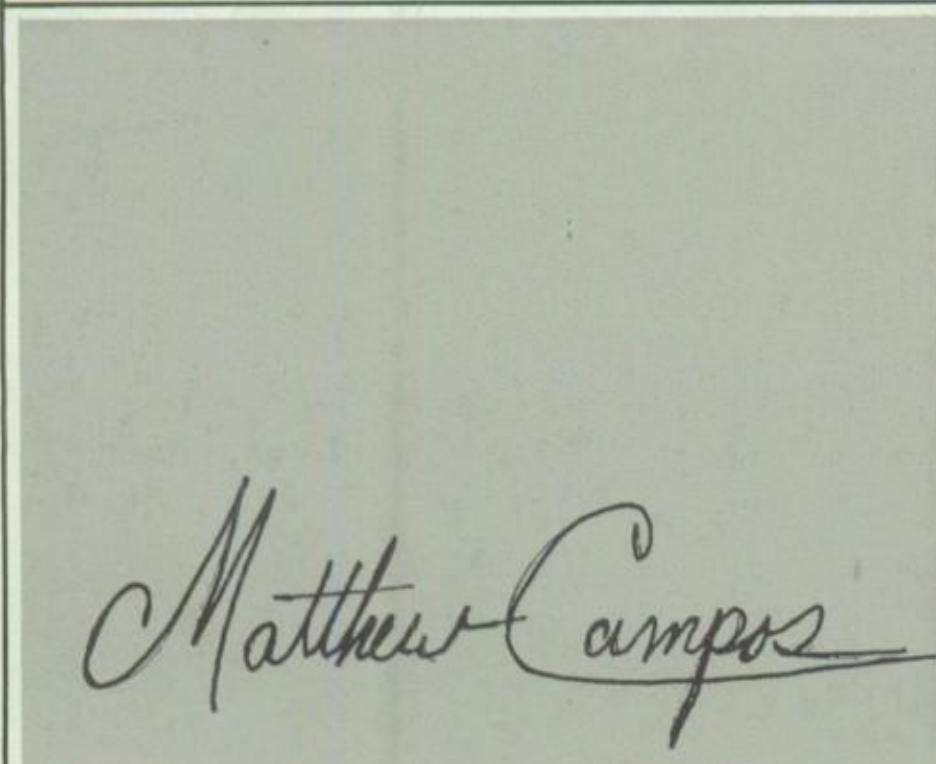 Matthew Campos